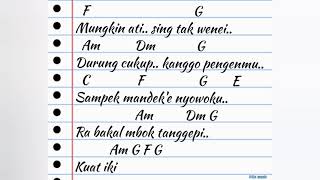 F G
Mungkin ati.. sing tak wenei..
Am Dm G
Durung cukup.. kanggo pengenmu..
C F G E
Sampek mandek'e nyowoku..
Am Dm G
Ra bakal mbok tanggepi..
Am G F G
Kuat iki